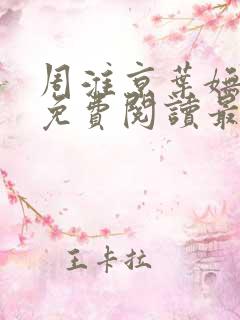 周淮京葉嫵
免費閱讀最
王卡拉